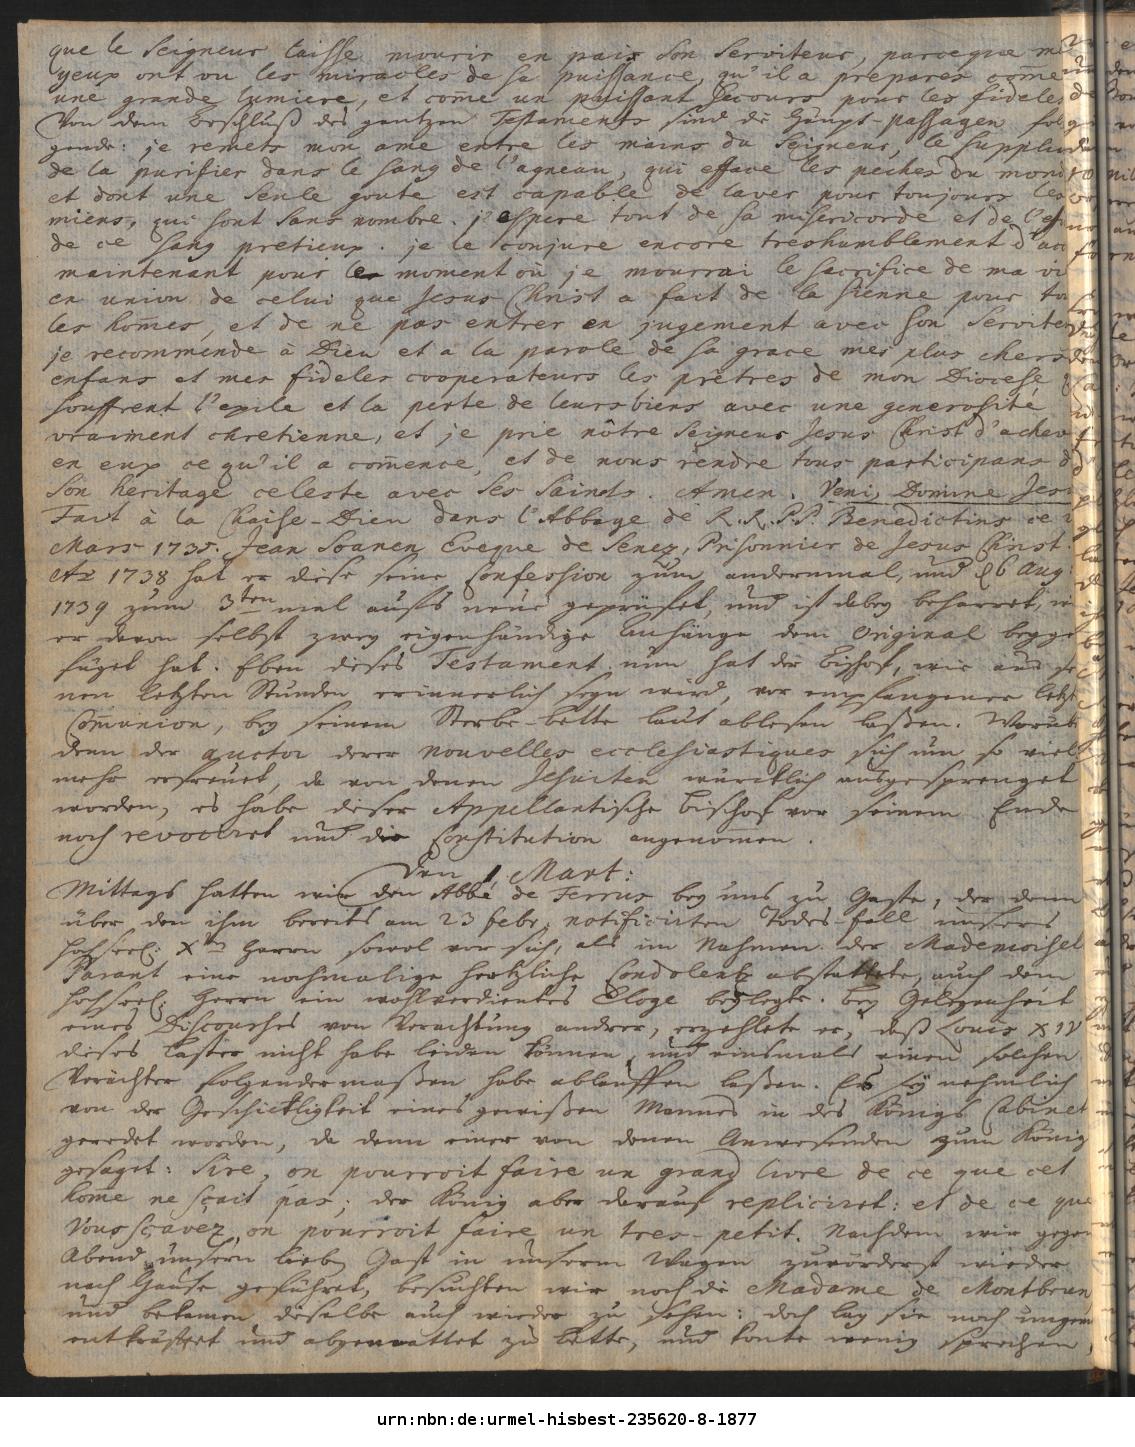 que le Seigneur laisse mourir en paix son Serviteur, parceque m
yeux ont vu les miracles de sa puissance, qu'il a prepares com̅e
une grande lumiere, et com̅e un puissant secours pour les fideles
Von dem Beschluß des gantzen Testaments sind die Haupt-passagen fol
gende: je remets mon ame entre les mains du Seigneur, le suppli
de la purifier dans le sang de l'agneau, qui efface les peches du mond
et dont une seule goute est capable de laver pour toujours les
miens, qui sont sans nombre. j'espere tout de sa misericorde et de l'ef
de ce sang pretieux. je le conjure encore treshumblement d'ac
maintenant pour le moment où je mourrai le sacrifice de ma vi
en union de celui que Jesus Christ a fait de la sienne pour to
les hom̅es, et de ne pas entrer en jugement avec son Servite
je recommende à Dieu et a la parole de sa grace mes plus chers
enfans et mes fideles cooperateurs les prêtres de mon Diocese,
souffrent l'exile et la perte de leurs biens avec une generosité
vraiment chretienne, et je prie nôtre Seigneur Jesus Christ d'achev
en eux ce qu'il a com̅ence, et de nous rendre tous participans d
son heritage celeste avec ses Saints. Amen. Veni, Domine Jesu
Fait à la Chaise-Dieu dans l'Abbaye de R.R.P.P. Benedictins ce
Mars 1735. Jean Soanen Eveque de Senez, Prisonnier de Jesus Christ.
Ao 1738 hat er diese seine Confession zum andernmal, und d 6 Aug:
1739 zum 3ten mal aufs neue geprüfet, und ist dabey beharret, wi
er davon selbst zwey eigenhändige Anhänge dem Original beyge
füget hat. Eben dieses Testament nun hat der Bischof, wie aus se
nen letzten Stunden erinnerlich seyn wird, vor empfangener letzt
Com̅union, bey seinem Sterbe-bette laut ablesen laßen. Worüb
denn der auctor derer nouvelles ecclesiastiques sich um so viel
mehr erfreuet, da von denen Jesuiten würcklich ausgesprenget
worden, es habe dieser Appellantische Bischof vor seinem Ende
noch revociret und die Constitution angenom̅en.
Den 1 Mart:
Mittags hatten wir den Abbé de Ferrus bey uns zu Gaste, der denn
über den ihm bereits am 23 febr. notificirten Todes-fall unsers
hochseel: Xn Herrn sowol vor sich, als im Nahmen der Mademoisel
Parant eine nochmalige hertzliche Condolentz abstattete, auch dem
hochseel: Herrn ein wohlverdientes Eloge beylegte. bey Gelegenheit
eines Discourses von Verachtung andrer, erzehlete er, daß Louis XIV
dieses Laster nicht habe leiden können, und einsmals einen solchen
Verächter folgender maßen habe ablauffen laßen. Es sey nehmlich
von der Geschicktigkeit eines gewißen Mannes in des Königs Cabinet
geredet worden, da denn einer von denen Anwesenden zum König
gesaget: Sire, on pourroit faire un grand livre de ce que cet
hom̅e ne sçait pas; der König aber darauf repliciret: et de ce que
vous sçavez, on pourroit faire un tres-petit. Nachdem wir gegen
Abend unsern lieben Gast in unserm Wagen zuvörderst wieder
nach Hause geführet, besuchten wir noch die Madame de Montbrun,
und bekamen dieselbe auch wieder zu sehen: doch lag sie noch ungem
entkräftet und abgemattet zu bette, und konte wenig sprechen,
urn:nbn:de:urmel-hisbest-235620-8-1877